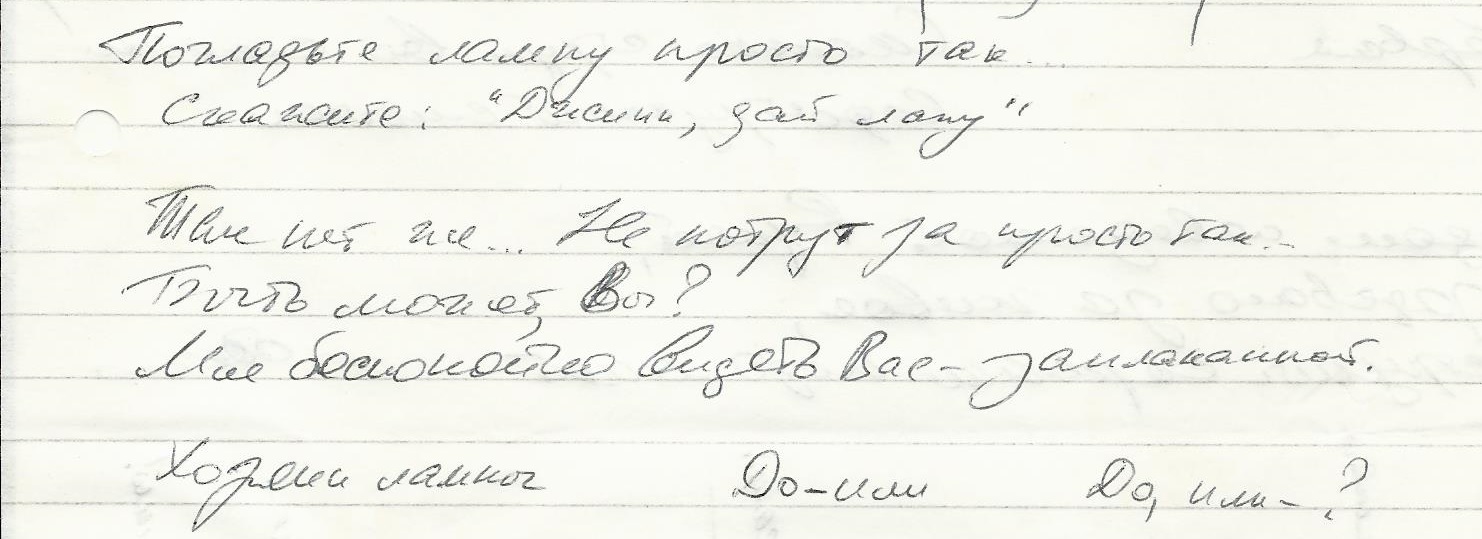 Погладьте лампу просто так...
Скажите: "Джинн, дай лапу"
Так нет же... Не потрут за просто так...
Быть может, Вы?
Мне беспокойно видеть Вас – заплаканной.
Хозяин лампы До – или До, или – ?